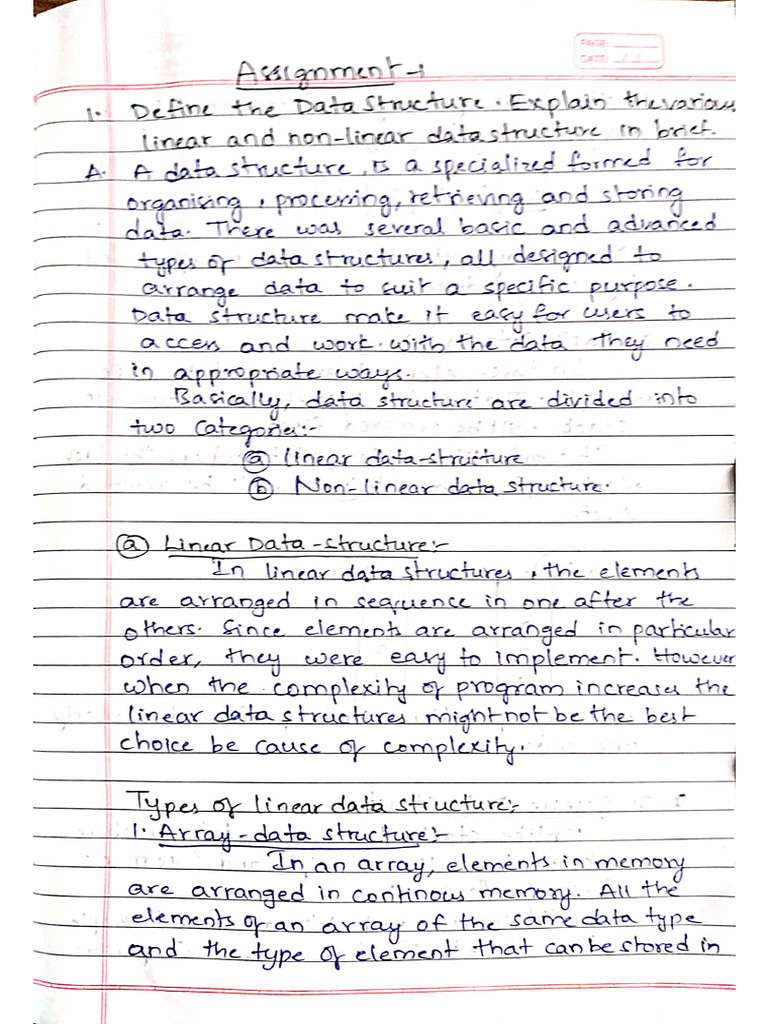 PAGE:
DATE: / /
Assignment-1
1. Define the Data structure. Explain the various
linear and non-linear data structure in brief.
A. A data structure, is a specialized formed for
organising, processing, retrieving and storing
data. There was several basic and advanced
types of data structures, all designed to
arrange data to suit a specific purpose.
Data structure make it easy for users to
access and work with the data they need
in appropriate ways.
Basically, data structure are divided into
two Categories:-
(a) linear data-structure
(b) Non-linear data structure.
(a) Linear Data-structure:-
In linear data structures, the elements
are arranged in sequence in one after the
others. Since elements are arranged in particular
order, they were easy to implement. However
when the complexity of program increases the
linear data structures might not be the best
choice be cause of complexity.
Types of linear data structure:-
1. Array-data structure:-
In an array, elements in memory
are arranged in continous memory. All the
elements of an array of the same data type
and the type of element that can be stored in